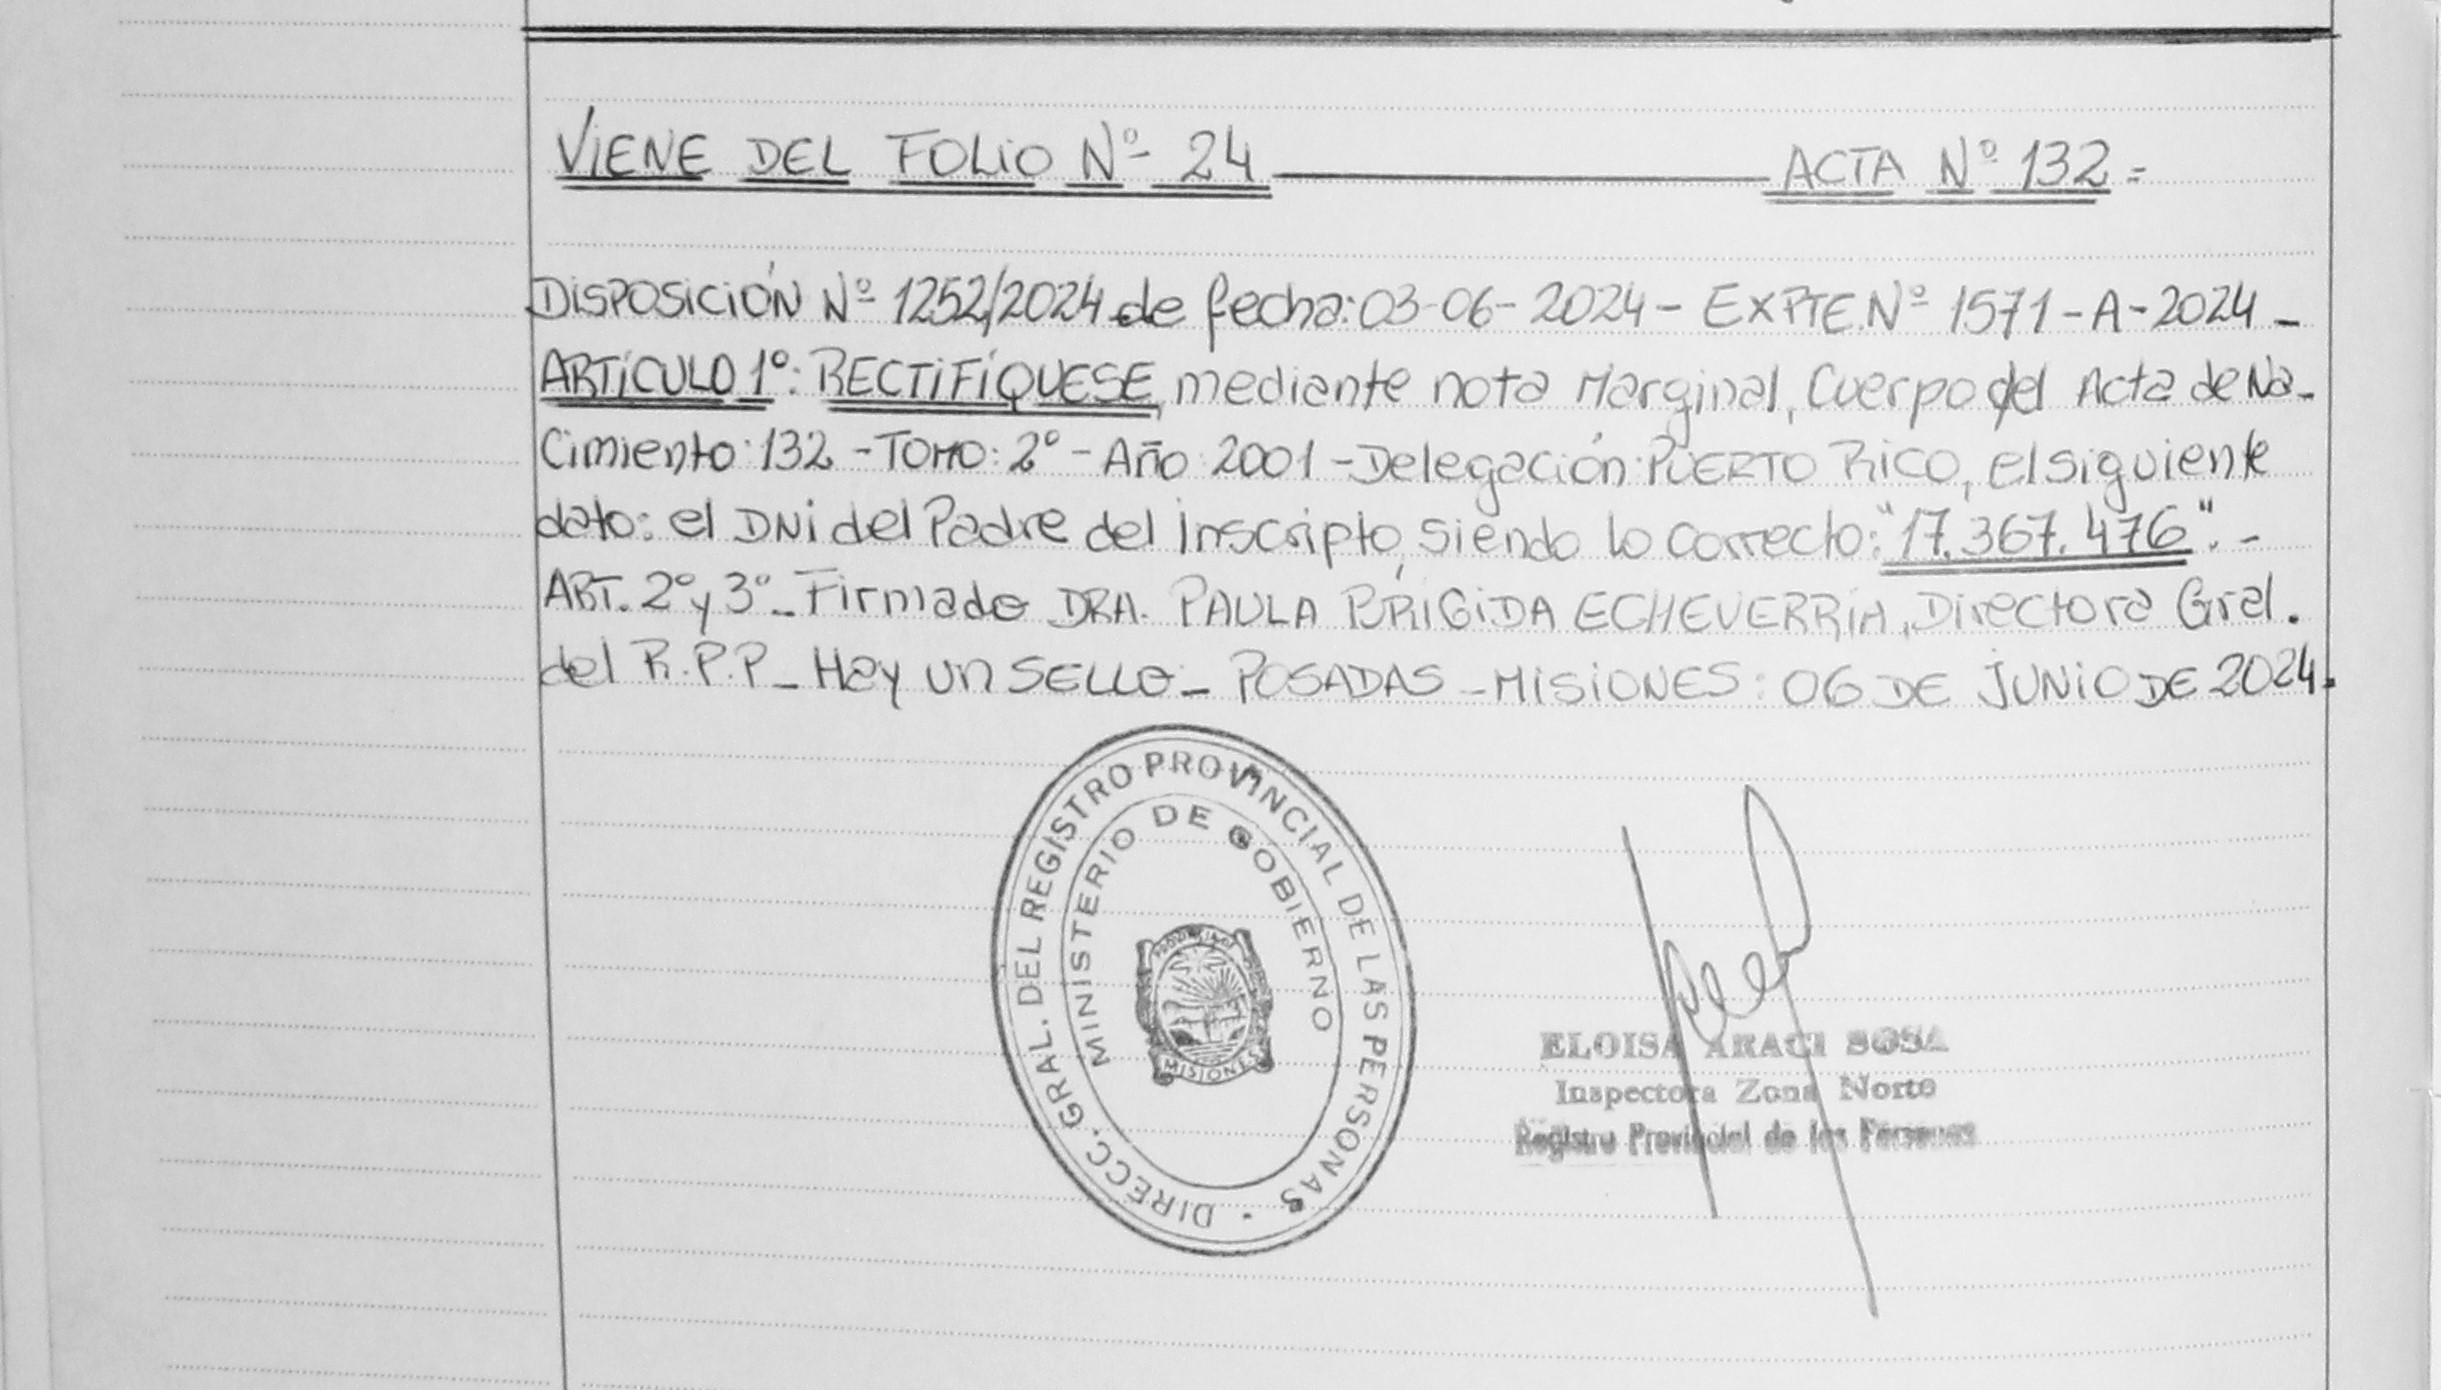 VIENE DEL FOLIO Nº 24 ACTA Nº 132=
DISPOSICIÓN Nº 1252/2024 de fecha: 03-06-2024 - EXPTE.Nº 1571-A-2024 -
ARTÍCULO 1º: RECTIFÍQUESE, mediante nota Marginal, Cuerpo del Acta de Na-
cimiento: 132 - TOMO: 2º - Año: 2001 - Delegación: PUERTO RICO, el siguiente
dato: el DNI del Padre del Inscripto, siendo lo correcto: "17.367.476". -
ART. 2º y 3º - Firmado DRA. PAULA BRÍGIDA ECHEVERRÍA, Directora Gral.
del R.P.P - Hay un SELLO - POSADAS - MISIONES: 06 DE JUNIO DE 2024.
DIRECC. GRAL. DEL REGISTRO PROVINCIAL DE LAS PERSONAS
MINISTERIO DE GOBIERNO
MISIONES
ELOISA ARACI SOSA
Inspectora Zona Norte
Registro Provincial de las Personas